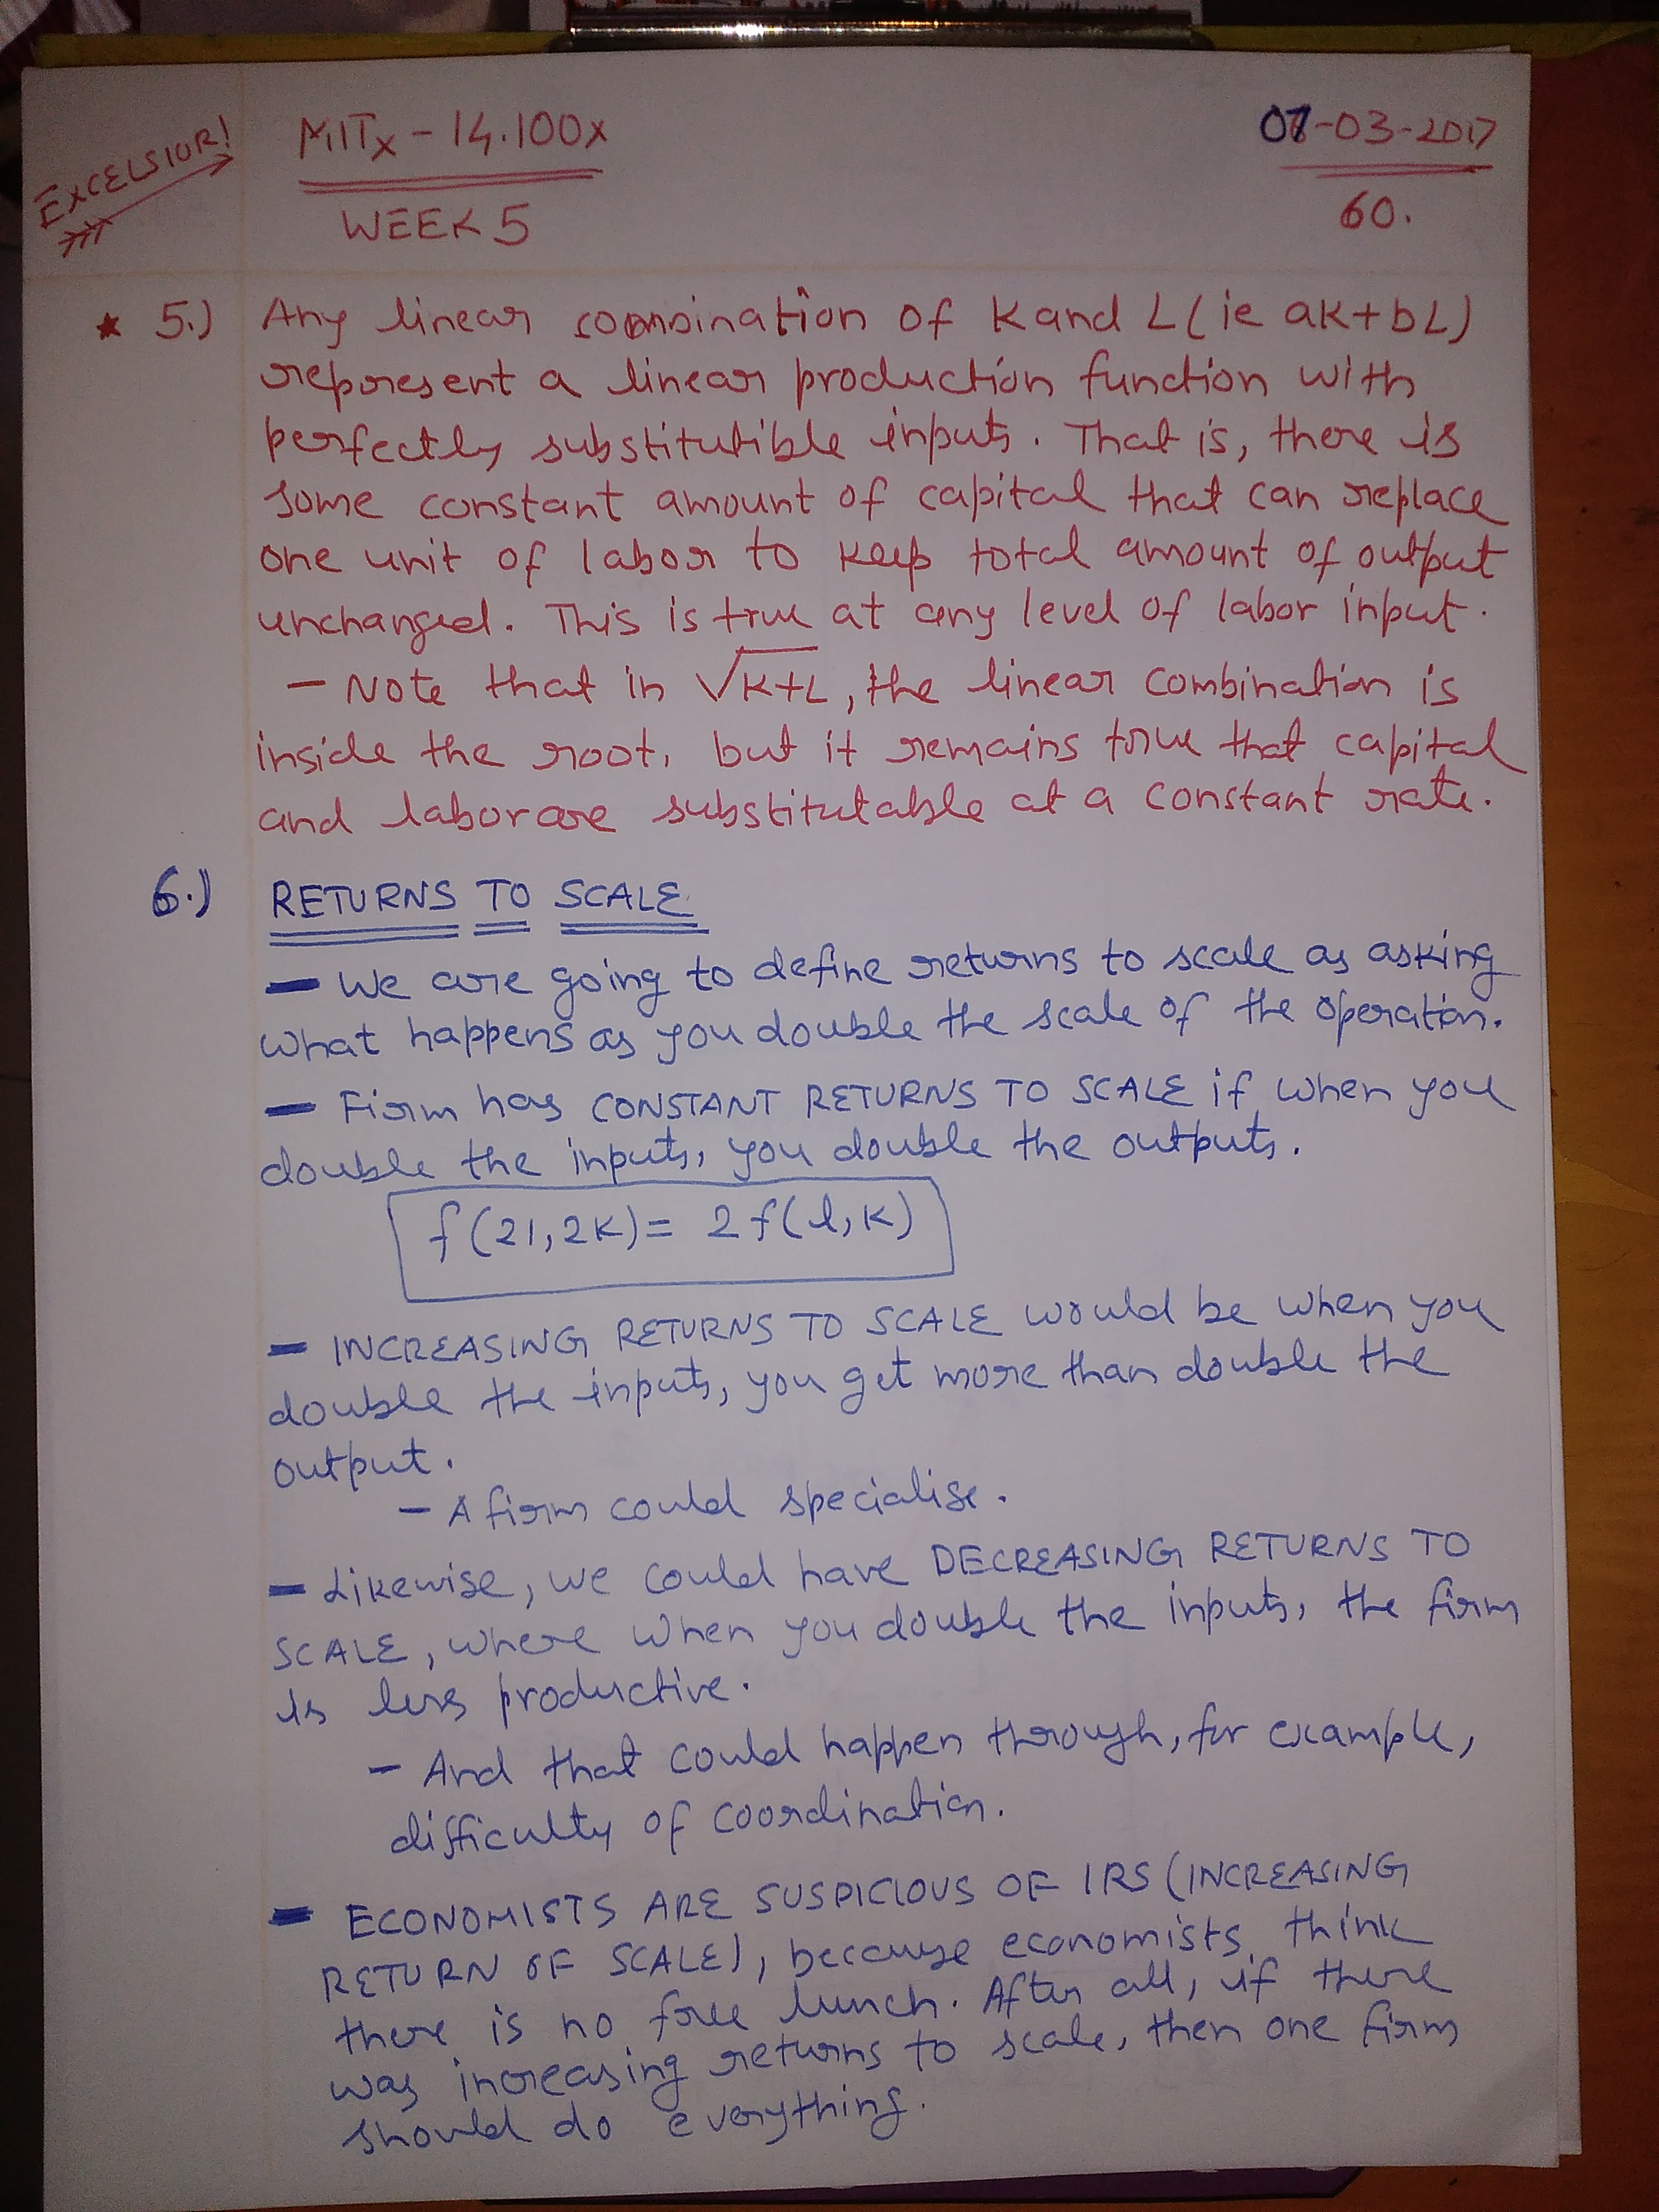 EXCELSIOR!
MITx - 14.100x
07-03-2017
WEEK 5
60.
★ 5.) Any linear combination of K and L (ie aK+bL)
represent a linear production function with
perfectly substitutible inputs. That is, there is
some constant amount of capital that can replace
one unit of labor to keep total amount of output
unchanged. This is true at any level of labor input.
— Note that in √K+L, the linear combination is
inside the root, but it remains true that capital
and labor are substitutable at a constant rate.
6.) RETURNS TO SCALE
— We are going to define returns to scale as asking
what happens as you double the scale of the operation.
— Firm has CONSTANT RETURNS TO SCALE if, when you
double the inputs, you double the outputs.
f(2l,2K) = 2f(l,K)
— INCREASING RETURNS TO SCALE would be when you
double the inputs, you get more than double the
output.
— A firm could specialise.
— Likewise, we could have DECREASING RETURNS TO
SCALE, where when you double the inputs, the firm
is less productive.
— And that could happen through, for example,
difficulty of coordination.
— ECONOMISTS ARE SUSPICIOUS OF IRS (INCREASING
RETURN OF SCALE), because economists think
there is no free lunch. After all, if there
was increasing returns to scale, then one firm
should do everything.